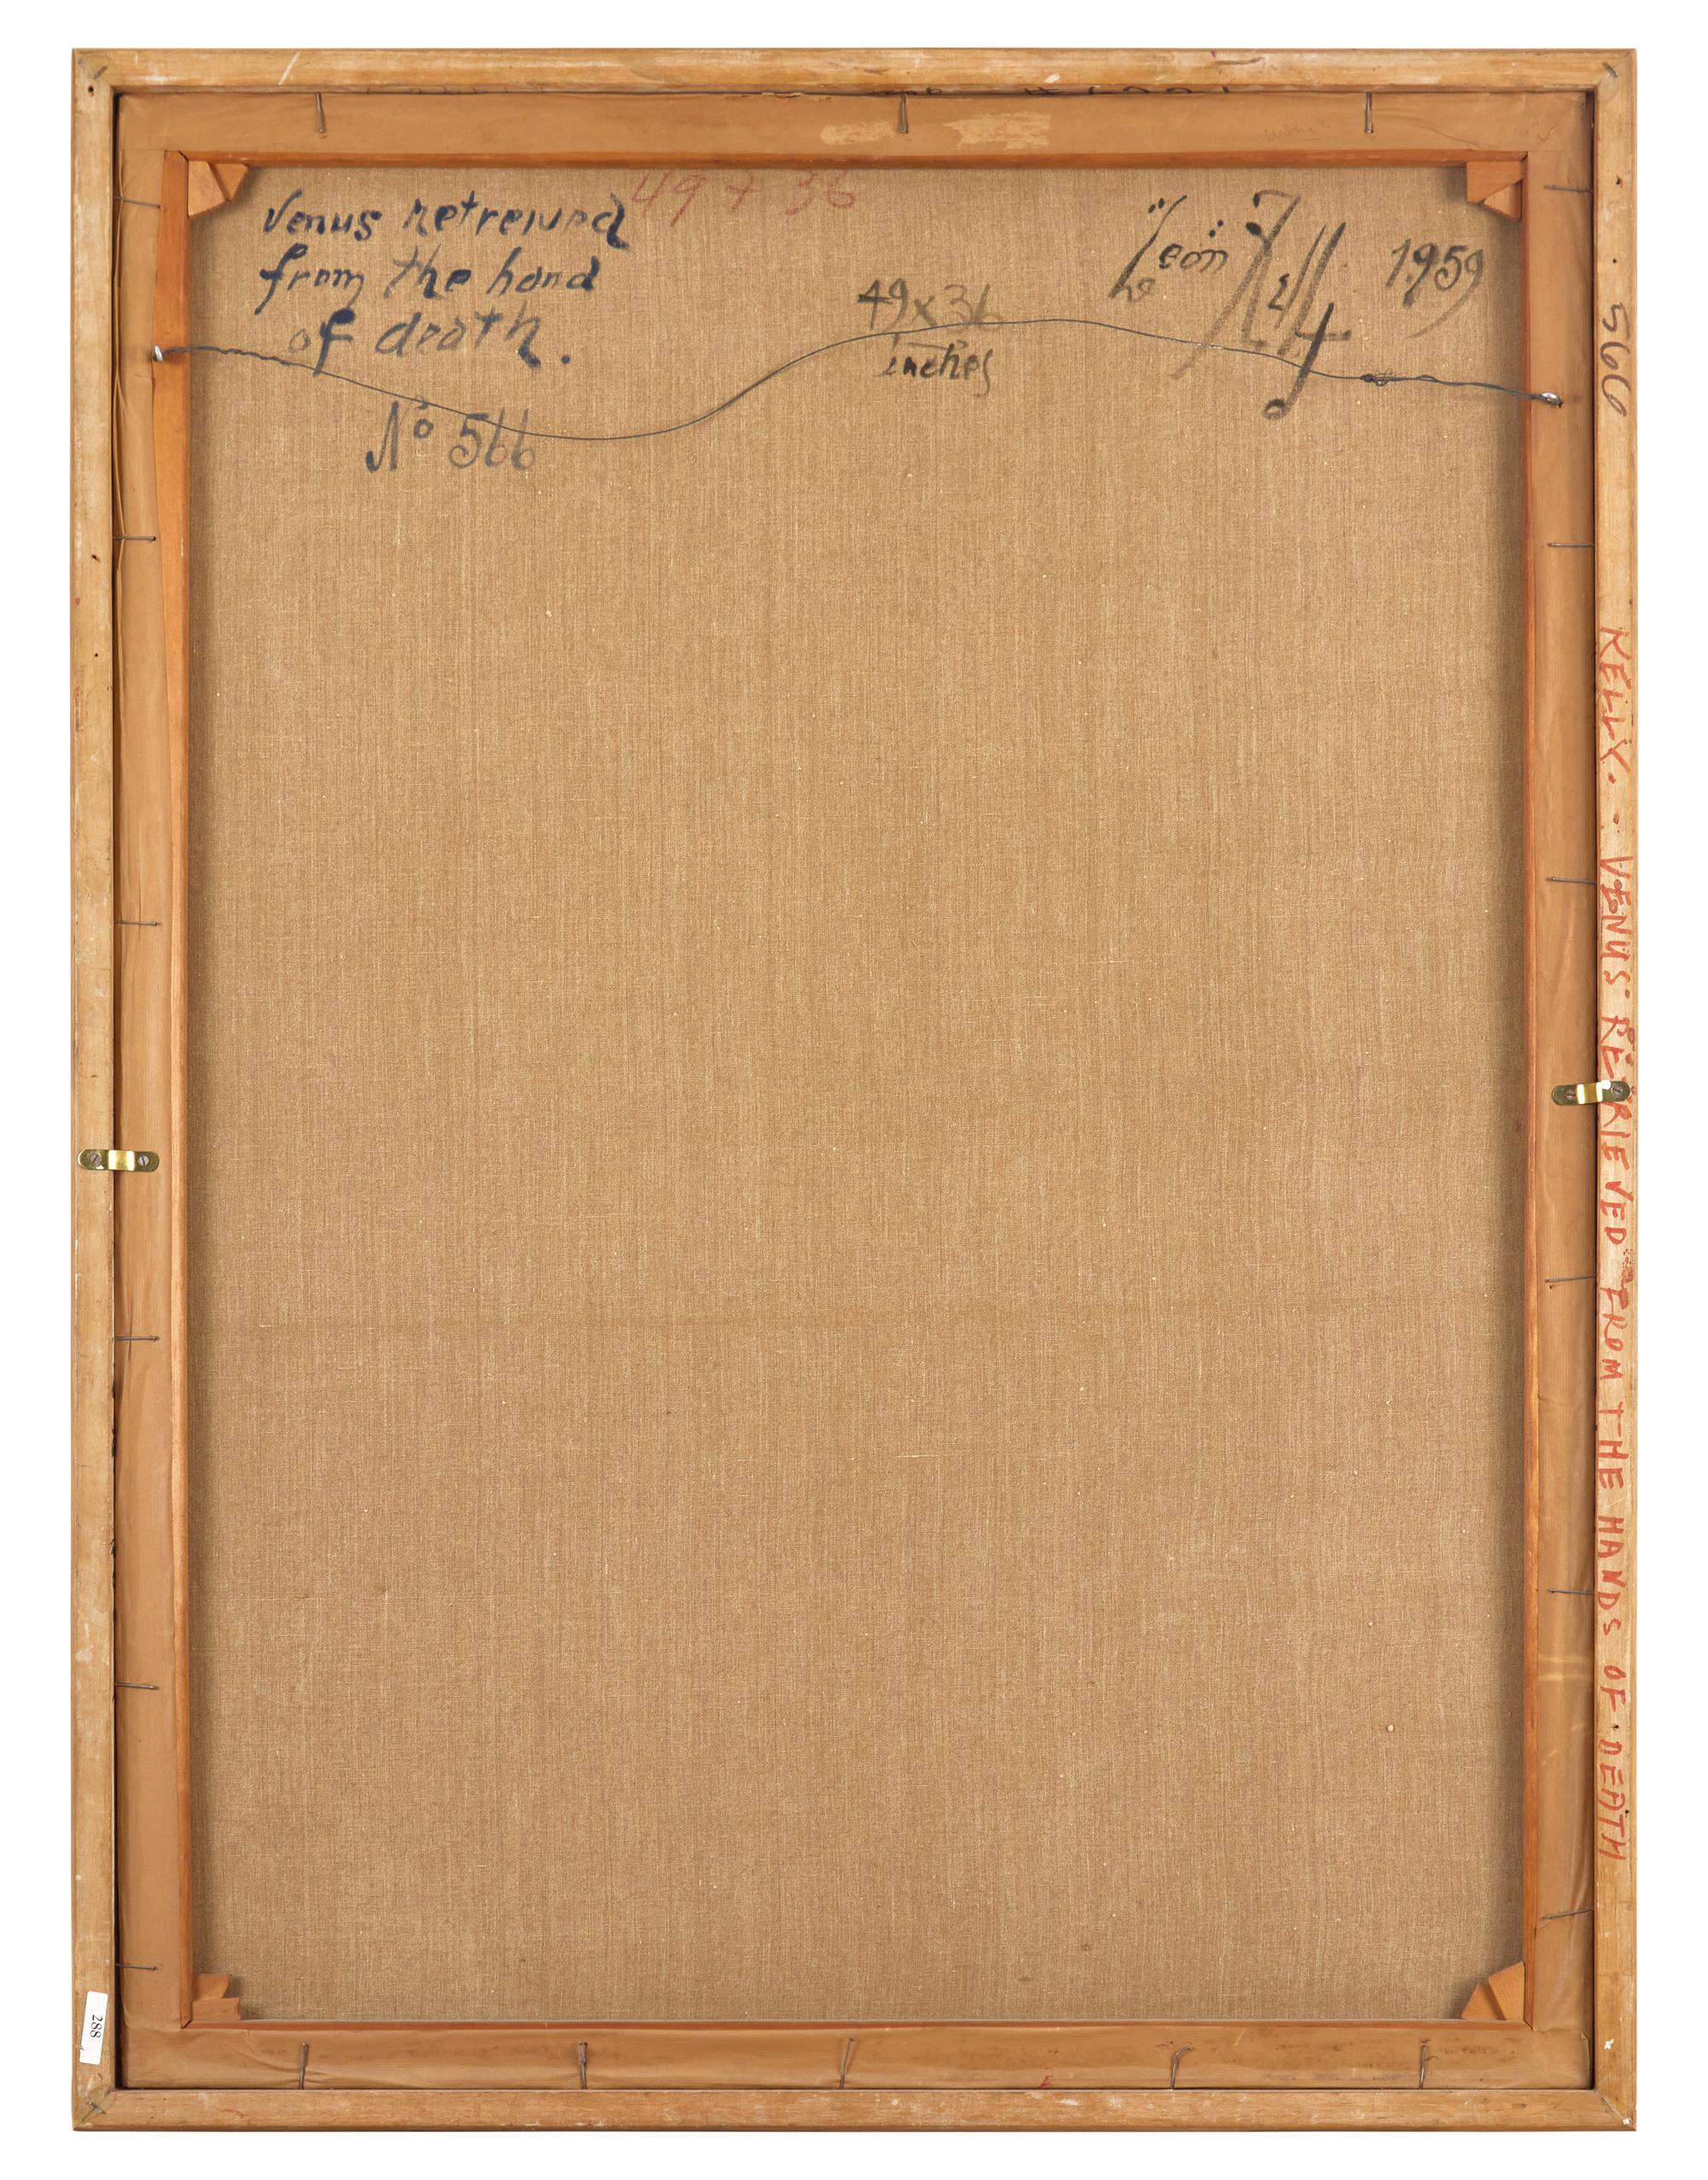 Venus retreived
from the hand
of death.
No 566
49 x 36
49 x 36
inches
Leon Kelly 1959
566 KELLY. - VENUS RETRIEVED FROM THE HANDS OF DEATH
288